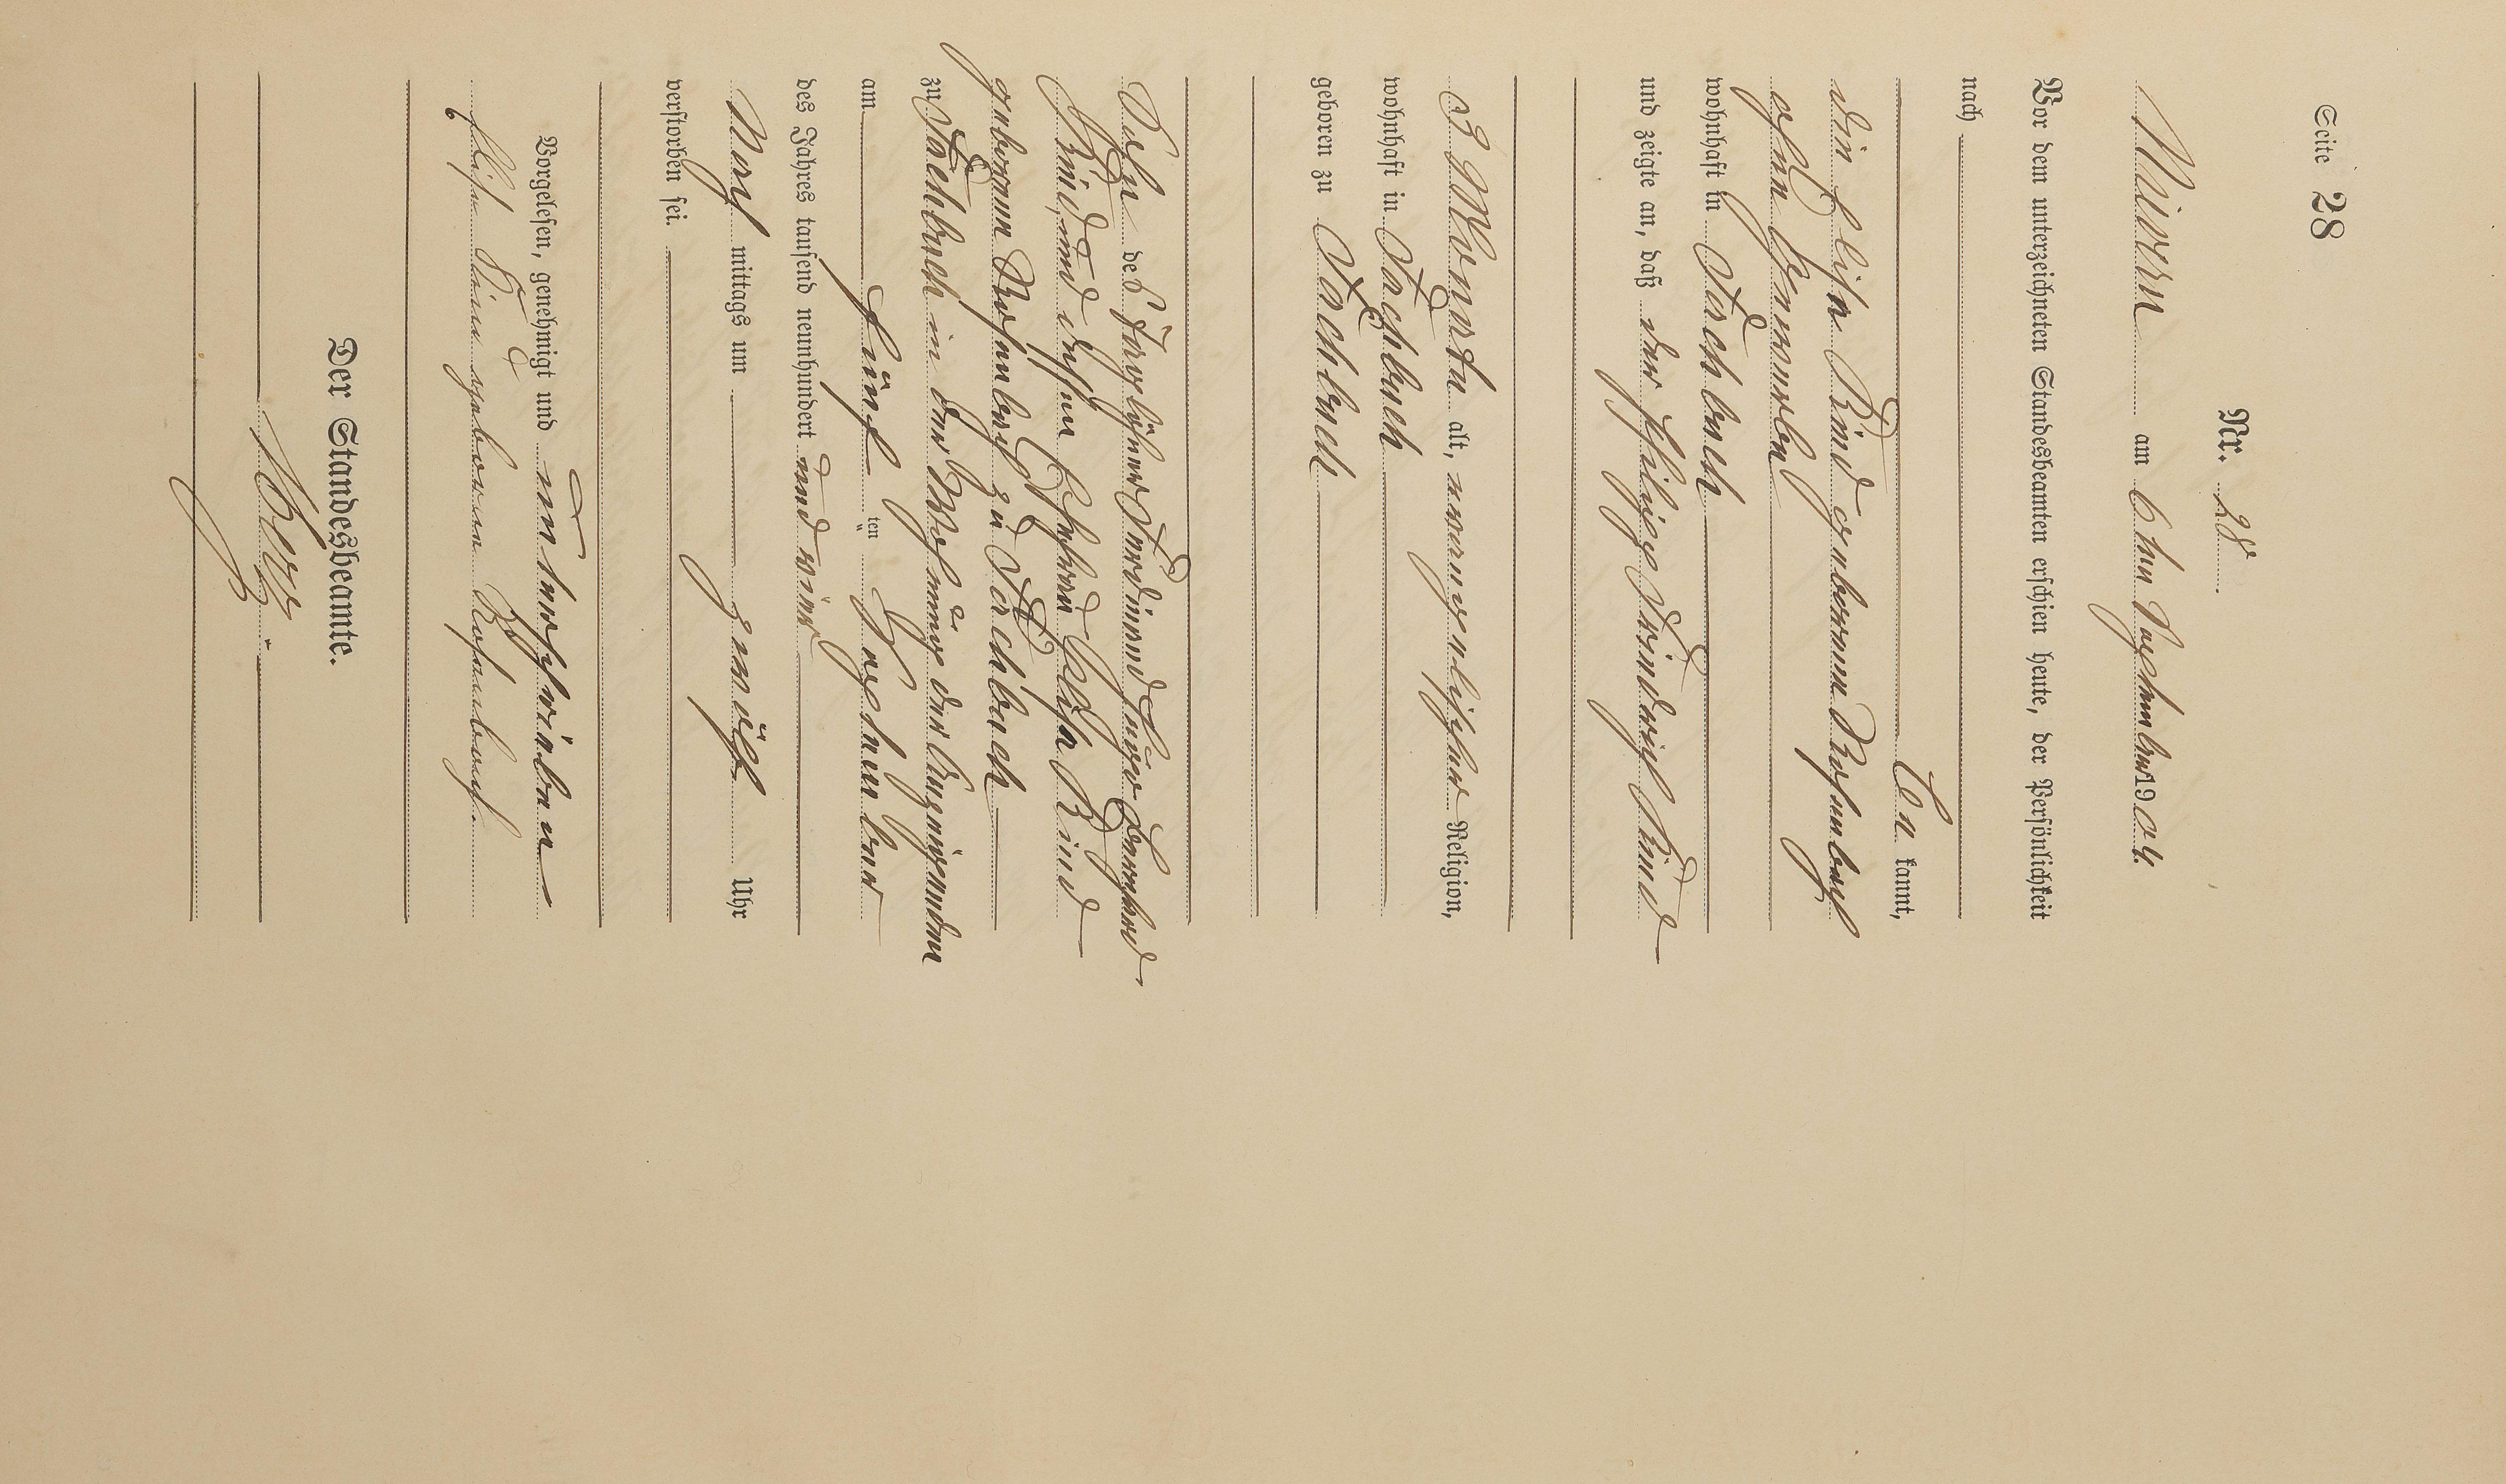 Seite 28
Nr. 28
Nievern am 6ten September 1904.
Vor dem unterzeichneten Standesbeamten erschien heute, der Persönlichkeit
nach
be kannt,
die Elise Kind geborenen Rosenberg
ohne Gewerbe
wohnhaft in Fachbach
und zeigte an, daß der Philipp Friedrich Kind
3 Monate alt, evangelischer Religion,
wohnhaft in Fachbach
geboren zu Fachbach
Sohn des Taglöhner Ferdinand Bernhard
Kind, und dessen Ehefrau Elise Kind
geborenen Rosenberg zu Fachbach
zu Fachbach in der Wohnung der Anzeigenden
am fünf ten September
des Jahres tausend neunhundert und vier
Nach mittags um zwölf Uhr
verstorben sei.
Vorgelesen, genehmigt und unterschrieben
Elise Kind geborene Rosenberg.
Der Standesbeamte.